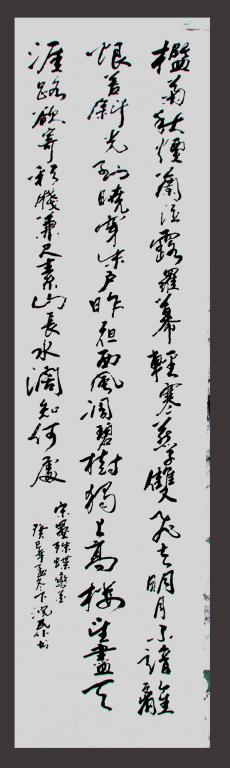 檻菊愁煙蘭泣露羅幕輕寒燕子雙飛去明月不諳離
恨苦斜光到曉穿朱戶昨夜西風凋碧樹獨上高樓望盡天
涯路欲寄彩牋兼尺素山長水闊知何處
宋晏殊蝶戀花
癸巳年孟冬下浣